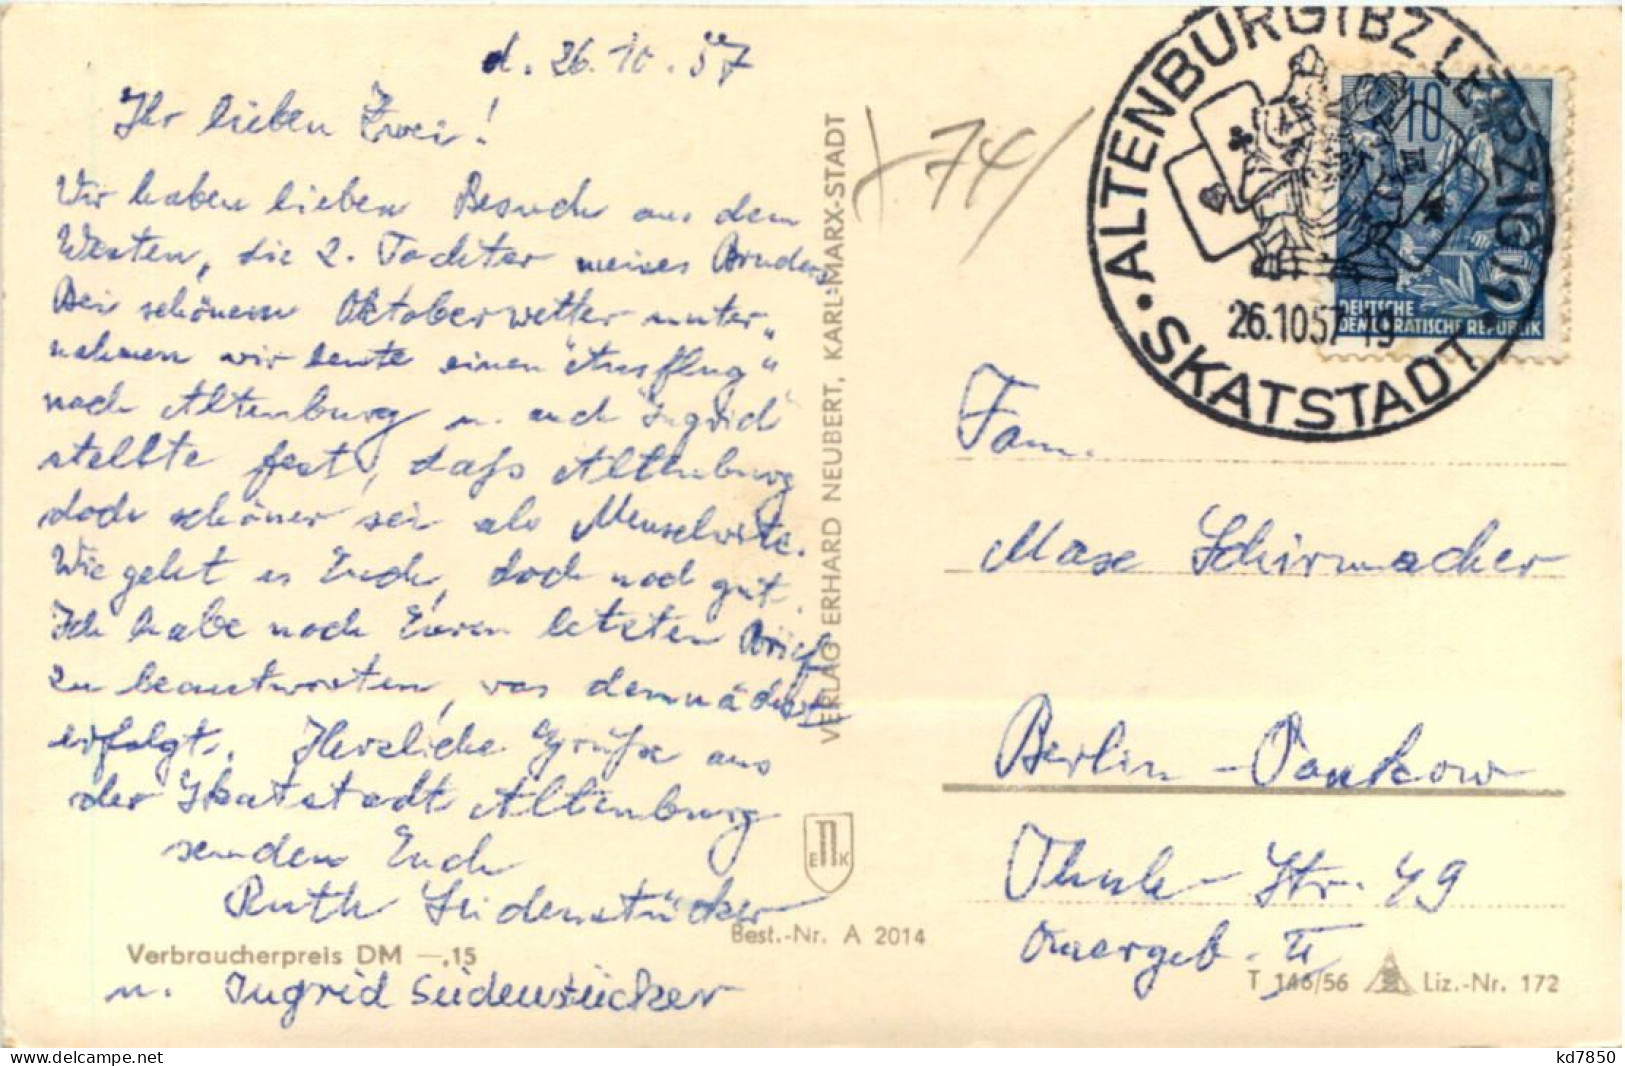 d. 26.10.57
Ihr lieben Zwei!
Wir haben lieben Besuch aus dem
Westen, die 2. Tochter meines Bruders.
Bei schönem Oktoberwetter unter„
nahmen wir heute einen "Ausflug"
nach Altenburg u. auch Ingrid
stellte fest, daß Altenburg
doch schöner sei als Meuselwitz.
Wie geht es Euch, doch noch gut.
Ich habe noch Euren letzten Brief
zu beantworten, was demnächst
erfolgt. Herzliche Grüße aus
der Skatstadt Altenburg
senden Euch
Ruth Seidenstücker
u. Ingrid Seidenstücker
Verbraucherpreis DM —,15
VERLAG ERHARD NEUBERT, KARL-MARX-STADT
E N K
Best.-Nr. A 2014
74
ALTENBURG (BZ LEIPZIG) 1
SKATSTADT
26.10.57-19
10
DEUTSCHE
DEMOKRATISCHE REPUBLIK
Fam.
Max Schirmacher
Berlin-Pankow
Str. 49
II
T 146/56 Liz.-Nr. 172
www.delcampe.net
kd7850